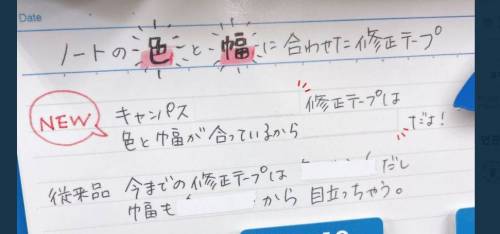 Date
ノートの色と幅に合わせた修正テープ
NEW
キャンパス
修正テープは
色と幅が合っているから
だよ!
従来品 今までの修正テープは だし
幅も から 目立っちゃう。